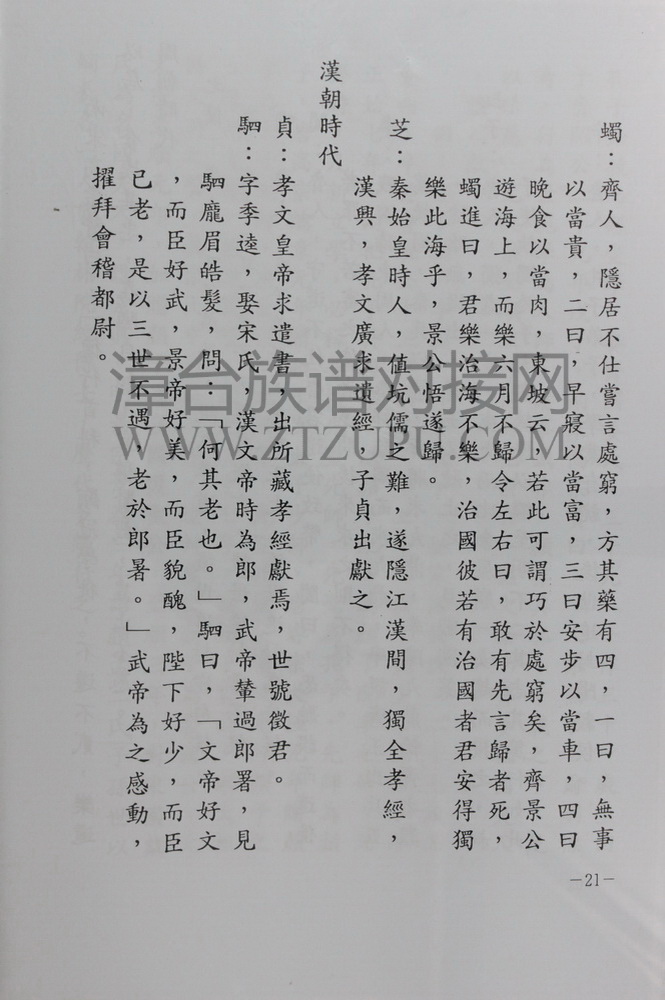 蠋：齊人，隱居不仕嘗言處窮，方其藥有四，一曰，無事
以當貴，二曰，早寢以當富，三曰安步以當車，四曰
晚食以當肉，東坡云，若此可謂巧於處窮矣，齊景公
遊海上，而樂六月不歸令左右曰，敢有先言歸者死，
蠋進曰，君樂治海不樂，治國彼若有治國者君安得獨
樂此海乎，景公悟遂歸。
芝：秦始皇時人，值坑儒之難，遂隱江漢間，獨全孝經，
漢興，孝文廣求遺經，子貞出獻之。
漢朝時代
貞：孝文皇帝求遺書，出所藏孝經獻焉，世號徵君。
駟：字季逵，娶宋氏，漢文帝時為郎，武帝輦過郎署，見
駟龐眉皓髮，問：「何其老也。」駟曰，「文帝好文
，而臣好武，景帝好美，而臣貌醜，陛下好少，而臣
已老，是以三世不遇，老於郎署。」武帝為之感動，
擢拜會稽都尉。
漳台族谱对接网
WWW.ZTZUPU.COM
－21－